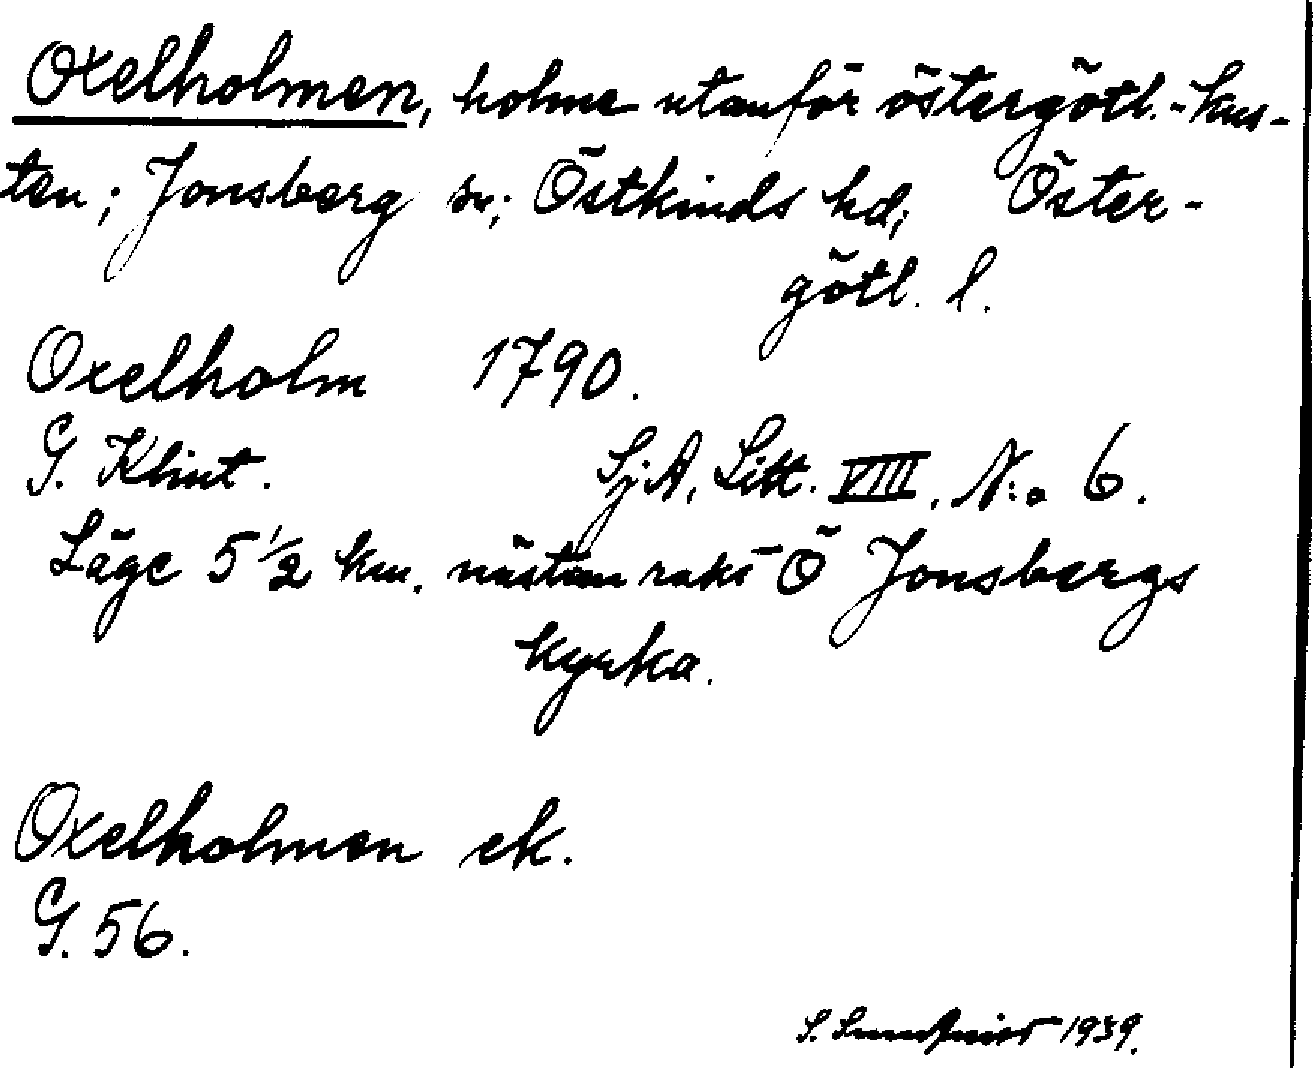 Oxelholmen, holme utanför östergötl.-kus-
ten; Jonsberg sn; Östkinds hd; Öster-
götl. l.
Oxelholm 1790.
G. Klint. SjA. Litt. VIII. N:o 6.
Läge 5 1/2 km. nästan rakt Ö Jonsbergs
kyrka.
Oxelholmen ek.
G. 56.
S. 1939.